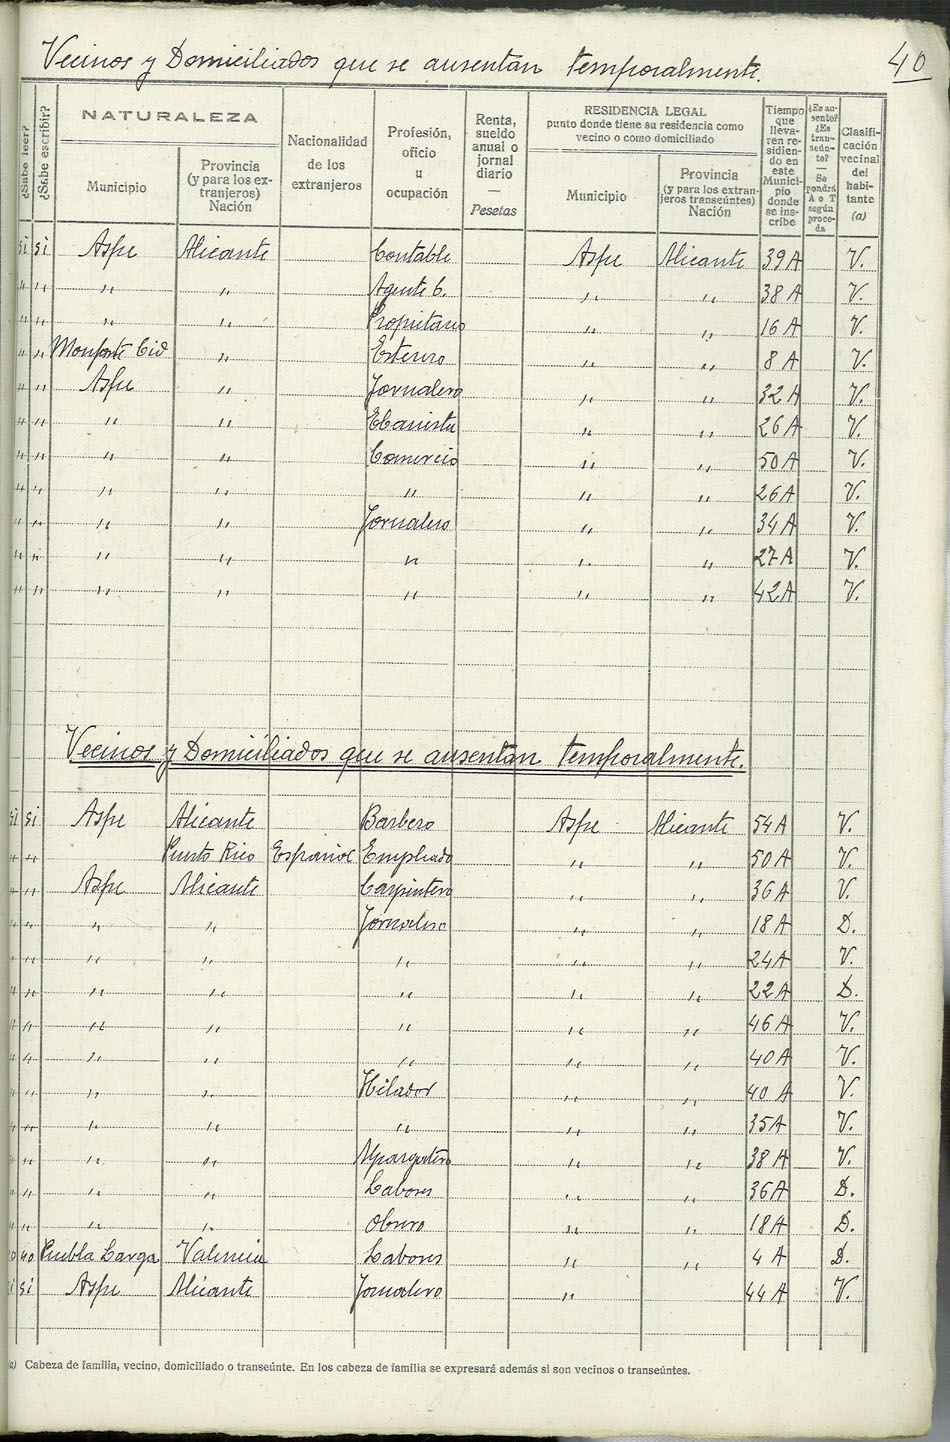 Vecinos y Domiciliados que se ausentan temporalmente. 40
¿Sabe leer? ¿Sabe escribir? NATURALEZA Municipio Provincia (y para los extranjeros) Nación Nacionalidad de los extranjeros Profesión, oficio u ocupación Renta, sueldo anual o jornal diario — Pesetas RESIDENCIA LEGAL punto donde tiene su residencia como vecino o como domiciliado Municipio Provincia (y para los extranjeros transeúntes) Nación Tiempo que llevaren residiendo en este Municipio donde se inscribe ¿Es ausente? ¿Es transeúnte? — Se pondrá A o T según proceda Clasificación vecinal del habitante (a)
si si Aspe Alicante Contable Aspe Alicante 39 A V.
" " " " Agente C. " " 38 A V.
" " " " Propietario " " 16 A V.
" " Monforte Cid " Esterero " " 8 A V.
" " Aspe " Jornalero " " 32 A V.
" " " " Ebanista " " 26 A V.
" " " " Comercio " " 50 A V.
" " " " " " " 26 A V.
" " " " Jornalero " " 34 A V.
" " " " " " " 27 A V.
" " " " " " " 42 A V.
Vecinos y Domiciliados que se ausentan temporalmente.
si si Aspe Alicante Barbero Aspe Alicante 54 A V.
" " Puerto Rico Español Empleado " " 50 A V.
" " Aspe Alicante Carpintero " " 36 A V.
" " " " Jornalero " " 18 A D.
" " " " " " " 24 A V.
" " " " " " " 22 A D.
" " " " " " " 46 A V.
" " " " " " " 40 A V.
" " " " Hilador " " 40 A V.
" " " " " " " 35 A V.
" " " " Alpargatero " " 38 A V.
" " " " Labores " " 36 A D.
" " " " Obrero " " 18 A D.
no no Puebla Larga Valencia Labores " " 4 A D.
si si Aspe Alicante Jornalero " 44 A V.
(a) Cabeza de familia, vecino, domiciliado o transeúnte. En los cabeza de familia se expresará además si son vecinos o transeúntes.